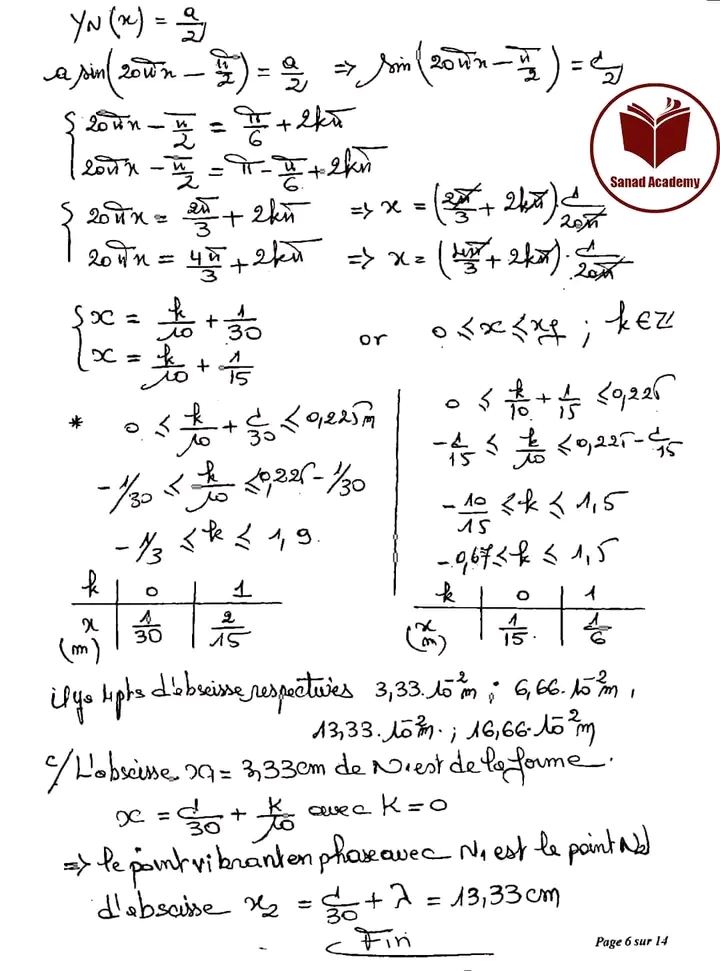 y_N(x) = a/2
a sin(20πx - π/2) = a/2 => sin(20πx - π/2) = 1/2
{ 20πx - π/2 = π/6 + 2kπ
20πx - π/2 = π - π/6 + 2kπ
Sanad Academy
{ 20πx = 2π/3 + 2kπ => x = (2π/3 + 2kπ) 1/20π
20πx = 4π/3 + 2kπ => x = (4π/3 + 2kπ) . 1/20π
{ x = k/10 + 1/30
x = k/10 + 1/15
or 0 ≤ x ≤ xf ; k ∈ Z
* 0 ≤ k/10 + 1/30 ≤ 0,225m
-1/30 ≤ k/10 ≤ 0,225 - 1/30
-1/3 ≤ k ≤ 1,9.
k | 0 | 1
x (m) | 1/30 | 2/15
0 ≤ k/10 + 1/15 ≤ 0,225
-1/15 ≤ k/10 ≤ 0,225 - 1/15
-10/15 ≤ k ≤ 1,5
-0,67 ≤ k ≤ 1,5
k | 0 | 1
x (m) | 1/15. | 1/6
il ya 4 pts d'abscisse respectives 3,33.10⁻²m ; 6,66.10⁻²m ,
13,33.10⁻²m. ; 16,66.10⁻²m
c/ L'abscisse x1 = 3,33cm de N1 est de la forme.
x = 1/30 + k/10 avec K = 0
=> le point vibrant en phase avec N1 est le point N2
d'abscisse x2 = 1/30 + λ = 13,33cm
Fin
Page 6 sur 14